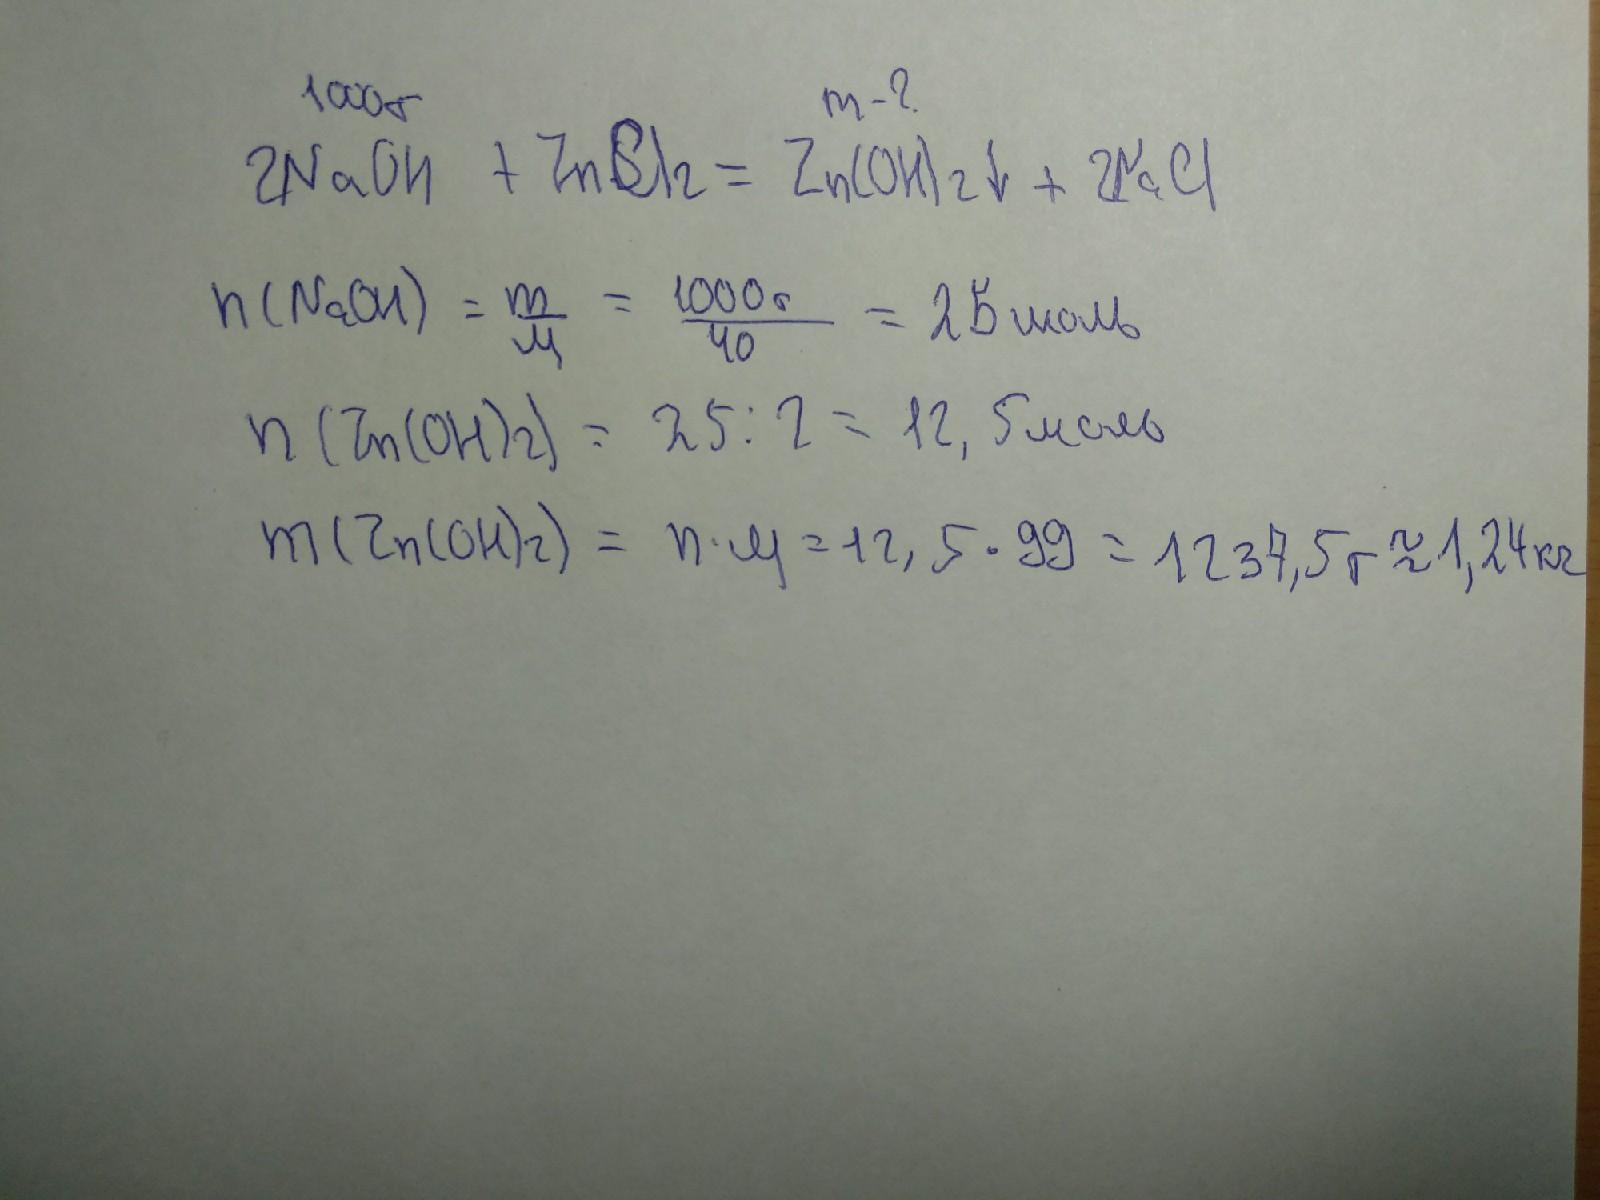 1000г m-?
2NaOH + ZnCl2 = Zn(OH)2↓ + 2NaCl
n(NaOH) = m/M = 1000г/40 = 25моль
n(Zn(OH)2) = 25:2 = 12,5моль
m(Zn(OH)2) = n·M = 12,5·99 = 1237,5г ≈ 1,24кг